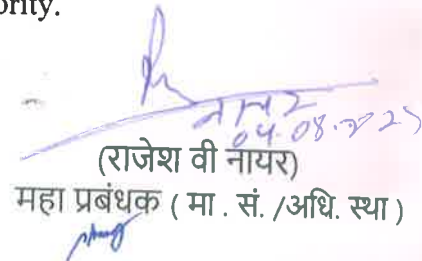 ority.
नायर
04.08.2025
(राजेश वी नायर)
महा प्रबंधक ( मा . सं. /अधि. स्था )